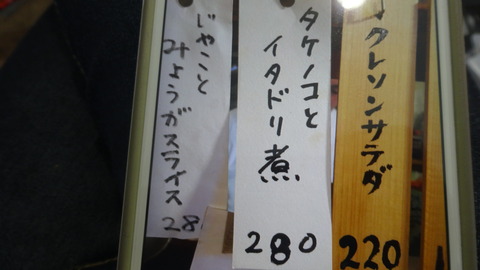 クレソンサラダ
220
タケノコと
イタドリ煮
280
じゃこと
みょうがスライス
28